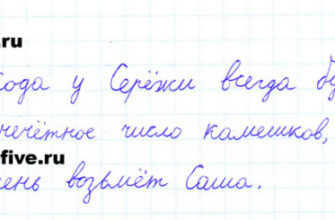 .ru
хода у Серёжи всегда бу
нечётное число камешков,
five.ru
ень возьмёт Саша.